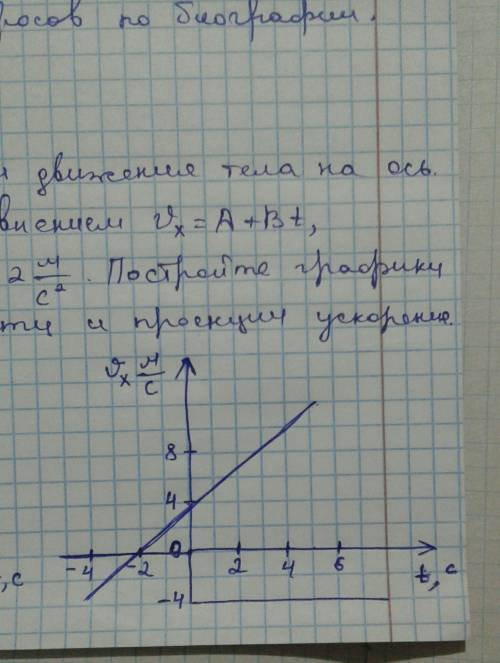 росов по биографии.
движения тела на ось.
внением υₓ = A + Bt,
2 м/с². Постройте графики
ти и проекции ускорение.
υₓ м/с
8
4
-4 -2 0 2 4 6
,с t, с
-4